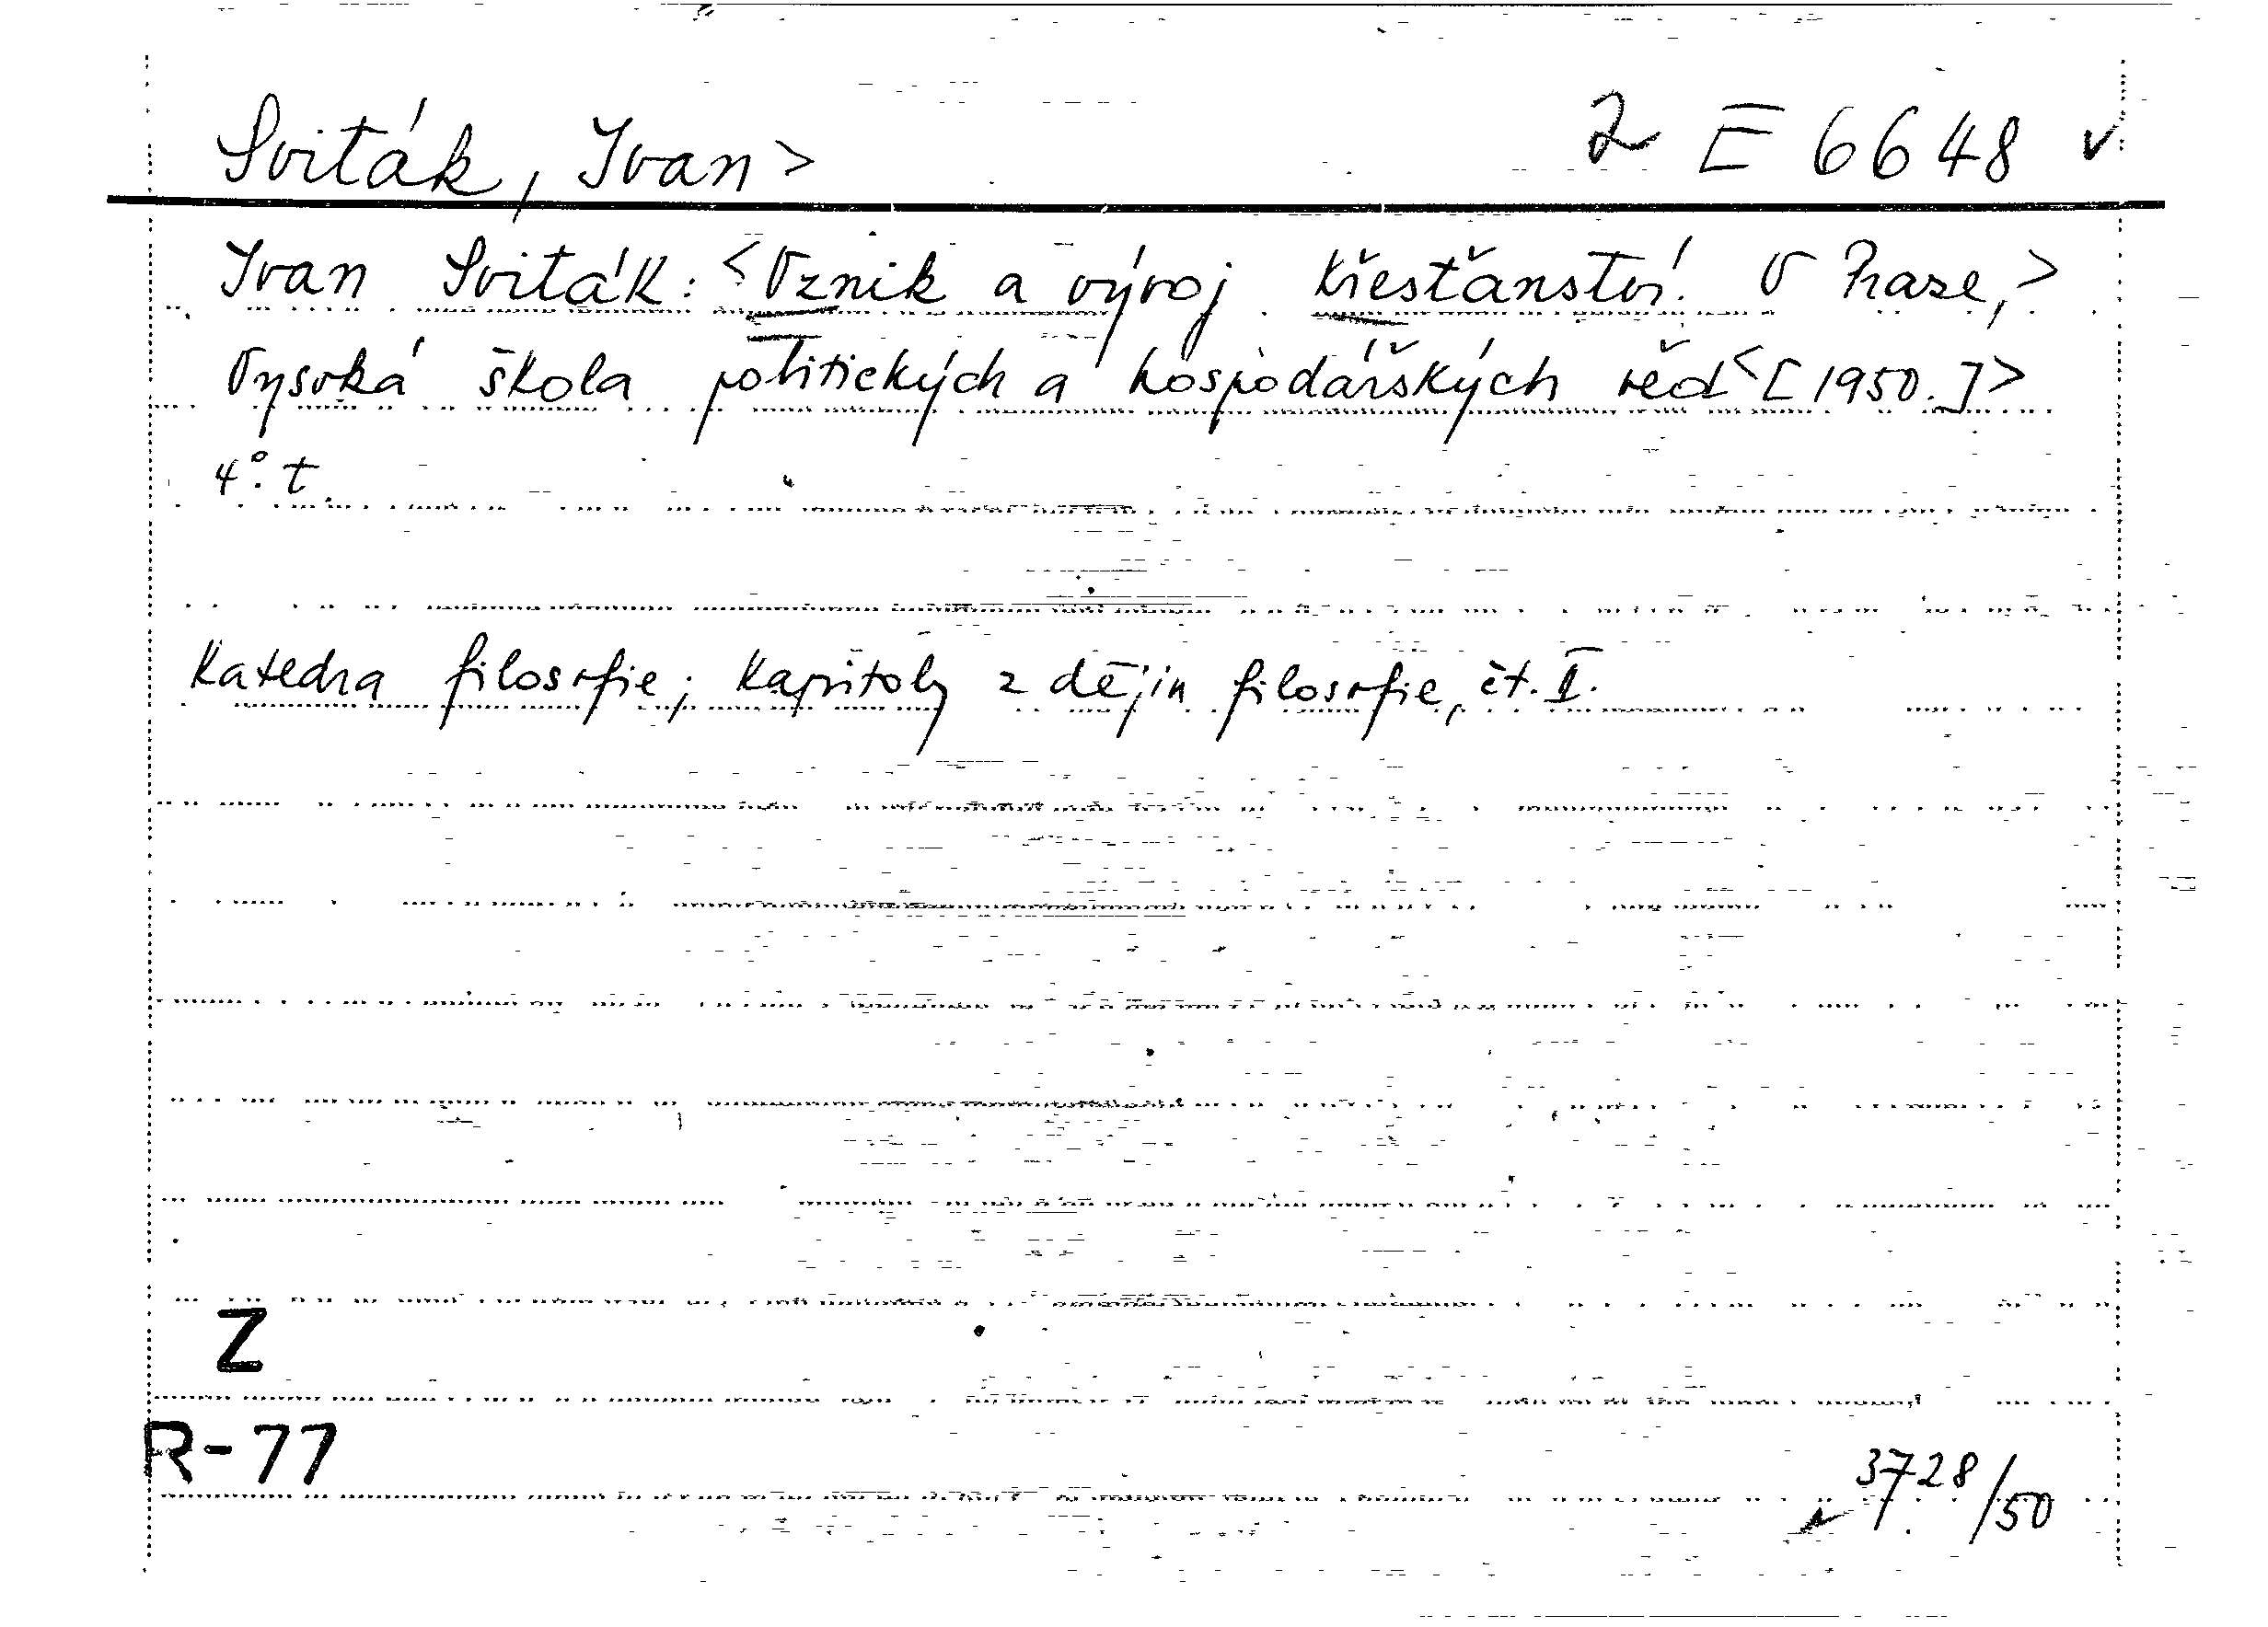 Sviták, Ivan> 2 E 6648 v
Ivan Sviták: <Vznik a vývoj křesťanství. V Praze,>
Vysoká škola politických a hospodářských věd <[1950.]>
4°. t.
Katedra filosofie; Kapitoly z dějin filosofie, čt. II.
Z
R-77
3728/50